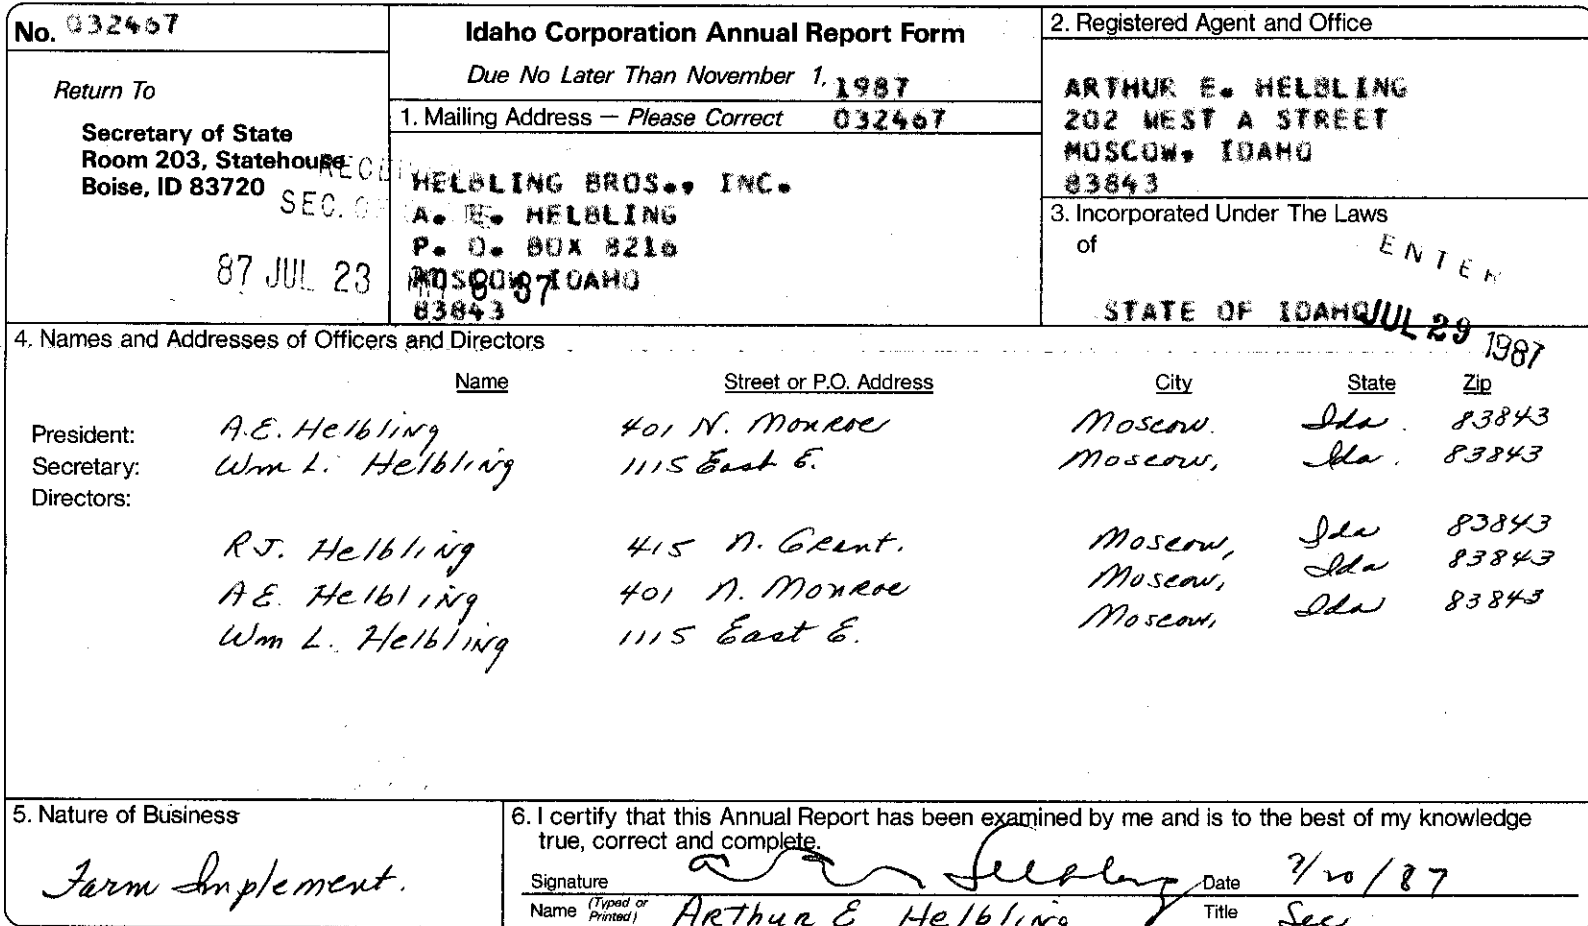 No. 032467
Idaho Corporation Annual Report Form
Due No Later Than November 1, 1987
2. Registered Agent and Office
Return To
Secretary of State
Room 203, Statehouse
Boise, ID 83720
SEC. OF
87 JUL 23
1. Mailing Address — Please Correct 032467
HELBLING BROS., INC.
A. E. HELBLING
P. O. BOX 8216
MOSCOW, IDAHO
83843
ARTHUR E. HELBLING
202 WEST A STREET
MOSCOW, IDAHO
83843
3. Incorporated Under The Laws
of
STATE OF IDAHO
ENTER
JUL 29 1987
4. Names and Addresses of Officers and Directors
Name Street or P.O. Address City State Zip
President: A.E. Helbling 401 N. Monroe Moscow. Ida. 83843
Secretary: Wm L. Helbling 1115 East E. Moscow, Ida. 83843
Directors:
R J. Helbling 415 N. Grant. Moscow, Ida 83843
A E. Helbling 401 N. Monroe Moscow, Ida 83843
Wm L. Helbling 1115 East E. Moscow, Ida 83843
5. Nature of Business
Farm Implement.
6. I certify that this Annual Report has been examined by me and is to the best of my knowledge
true, correct and complete.
Signature Helbling Date 7/20/87
Name (Typed or Printed) Arthur E Helbling Title Sec